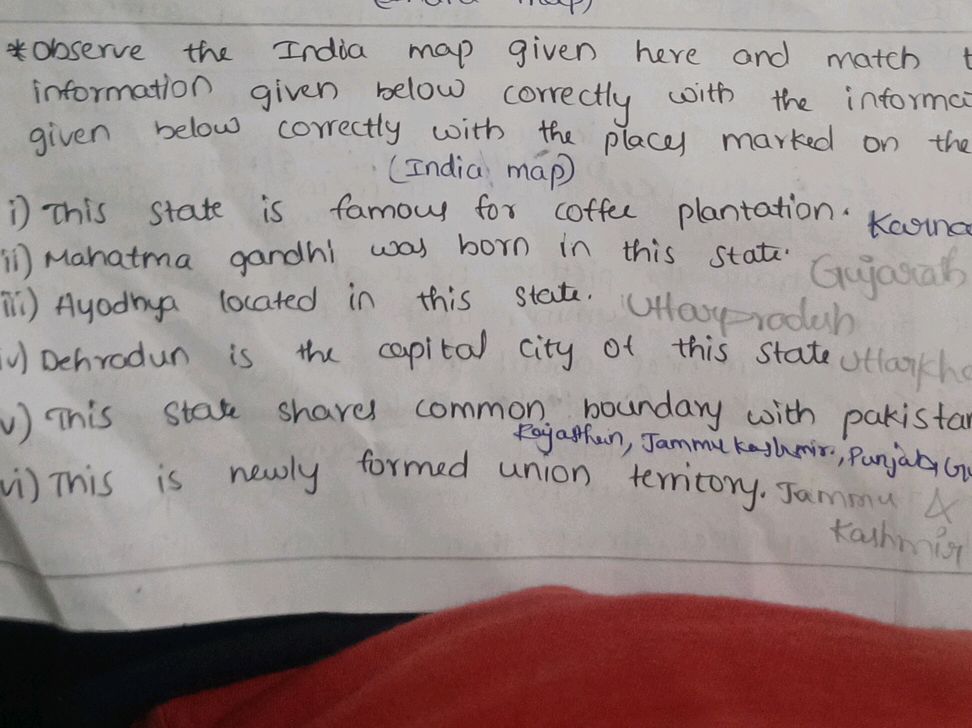 *Observe the India map given here and match
information given below correctly with the informa
given below correctly with the places marked on the
(India map)
i) This state is famous for coffee plantation. Karna
ii) Mahatma gandhi was born in this state. Gujarab
iii) Ayodhya located in this state. Uttarpradesh
iv) Dehradun is the capital city of this state Uttarkha
v) This state shares common boundary with pakistan
Rajasthan, Jammu kashmir, Punjab, Gu
vi) This is newly formed union territory. Jammu &
Kashmir